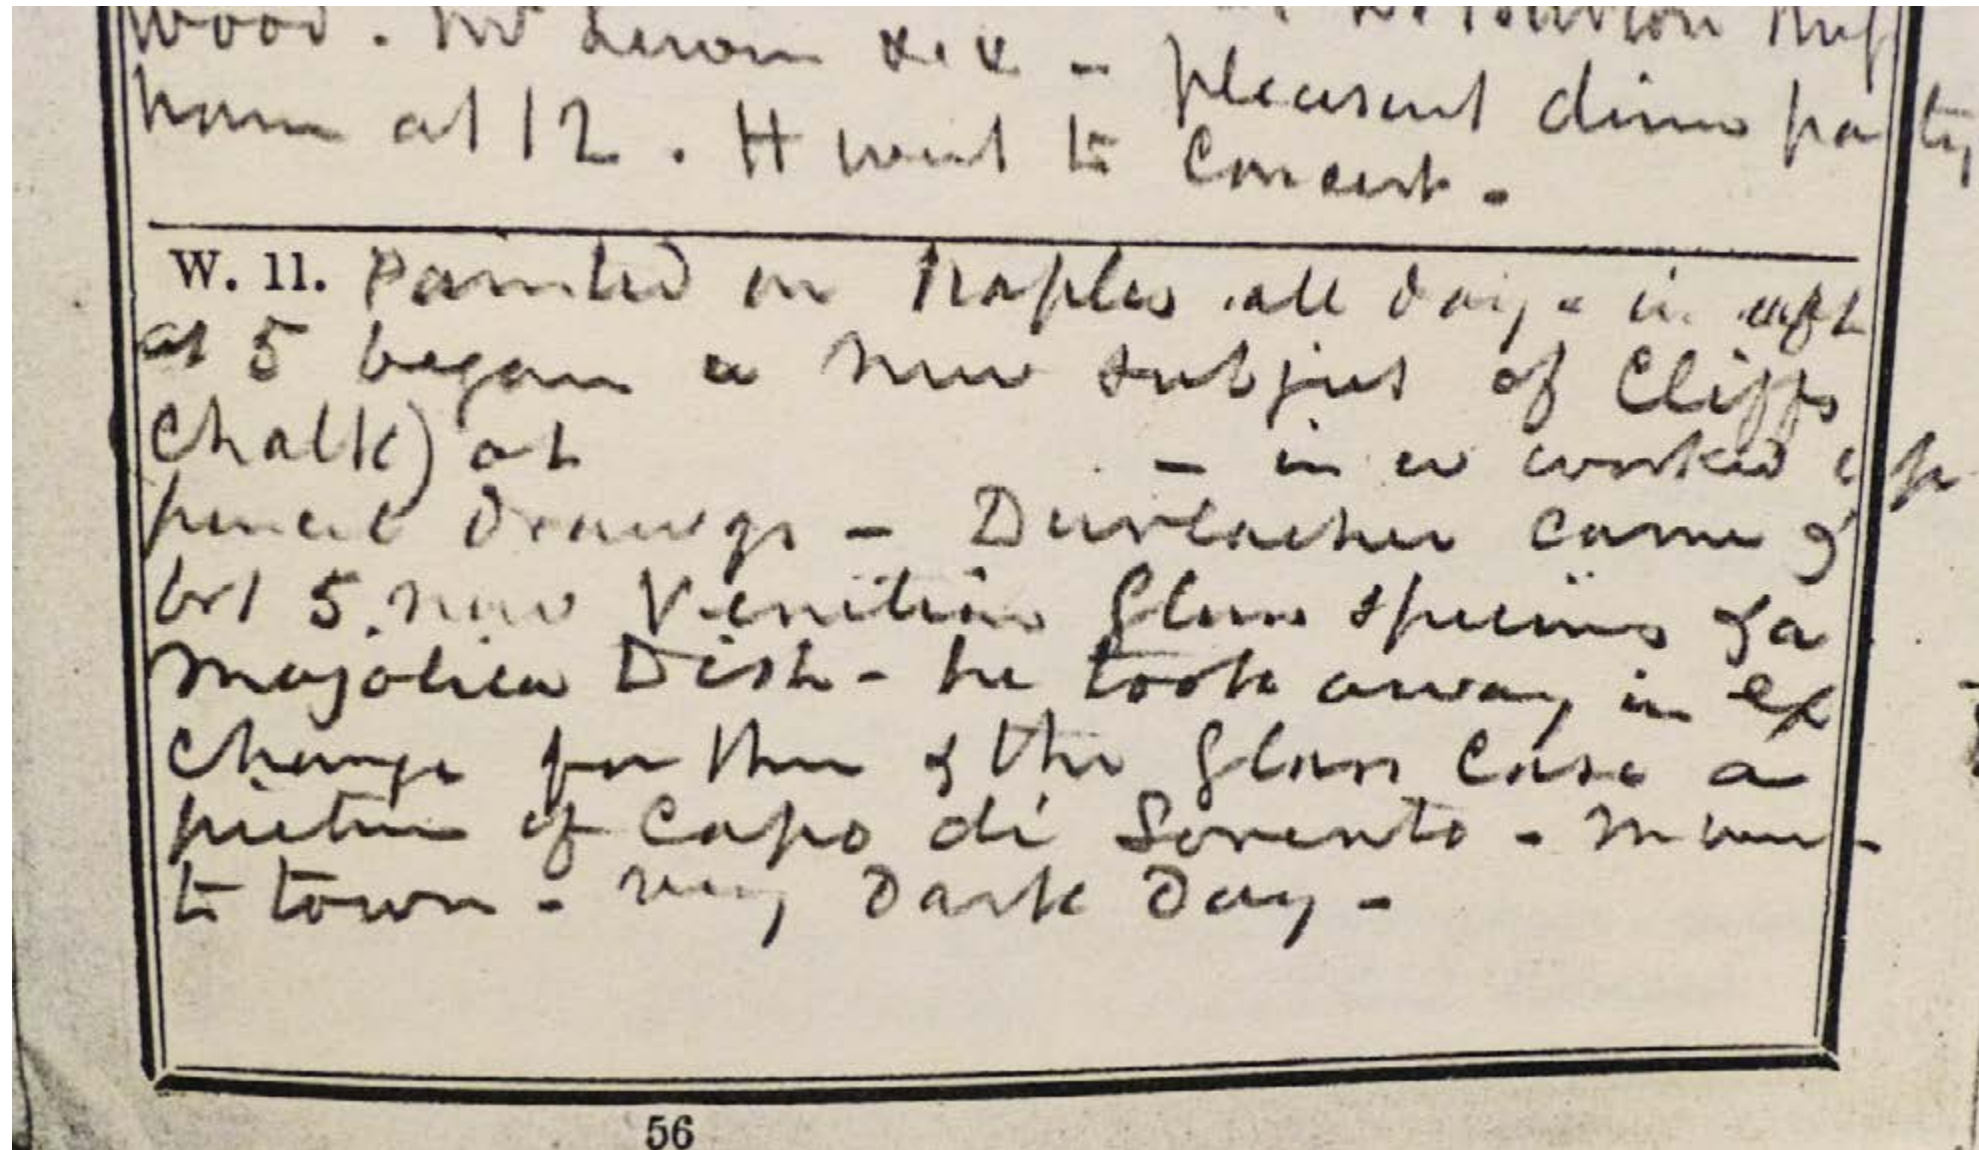 wood. Mr &c &c - pleasant dinner party
home at 12. H went to Concert.
W. 11. Painted on Naples all day - in aft
at 5 began a new subject of Cliffs
Chalk) at - in ev worked up
pencil drawings - Durlacher came &
brt 5 new Venetian Glass specims & a
Majolica Dish - he took away in ex
change for them & the Glass Case a
picture of Capo di Sorento - M went
to town - very dark day -
56